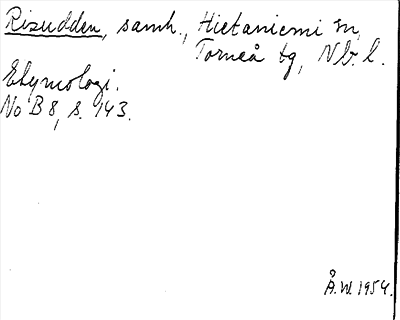 Risudden, samh., Hietaniemi sn,
Torneå tg, Nb. l.
Etymologi.
No B 8, s. 143.
Å.W. 1954.